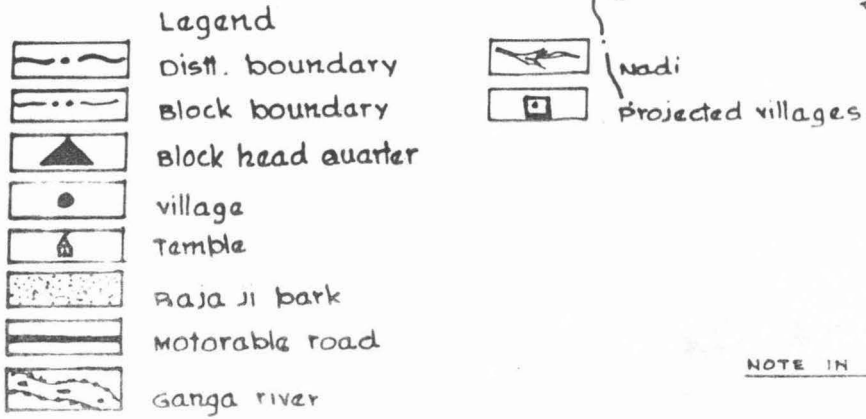 Legend
Distt. boundary
Block boundary
Block head quarter
village
Temble
Raja Ji park
Motorable road
Ganga river
Nadi
Projected villages
NOTE IN